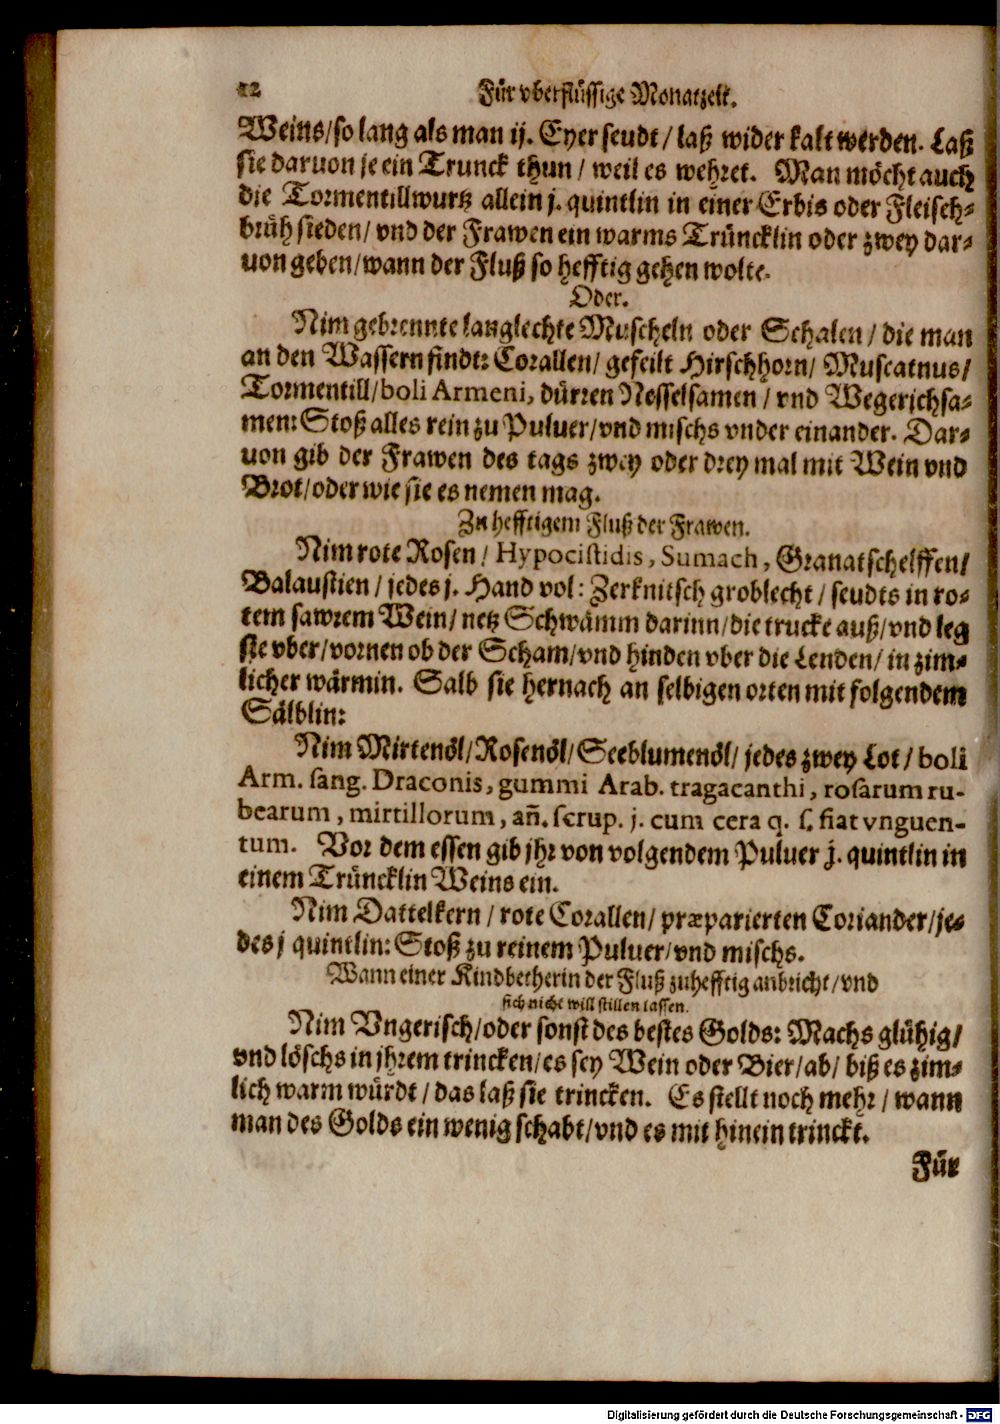 12 Für vberflüssige Monatzeit.
Weins/so lang als man ij. Eyer seudt/ laß wider kalt werden. Laß
sie daruon je ein Trunck thun/ weil es wehret. Man möcht auch
die Tormentillwurtz allein j. quintlin in einer Erbis oder Fleisch-
brüh sieden/ vnd der Frawen ein warms Trüncklin oder zwey dar-
uon geben/wann der Fluß so hefftig gehen wolte.
Oder.
Nim gebrennte langlechte Muscheln oder Schalen/ die man
an den Wassern findt: Corallen/ gefeilt Hirschhorn/ Muscatnus/
Tormentill/boli Armeni, dürren Nesselsamen/ vnd Wegerichsa-
men: Stoß alles rein zu Puluer/vnd mischs vnder einander. Dar-
uon gib der Frawen des tags zwey oder drey mal mit Wein vnd
Brot/oder wie sie es nemen mag.
Zu hefftigem Fluß der Frawen.
Nim rote Rosen/ Hypocistidis, Sumach, Granatschelffen/
Balaustien/ jedes j. Hand vol: Zerknitsch groblecht/ seudts in ro-
tem sawrem Wein/ netz Schwämm darinn/die trucke auß/vnd leg
sie vber/vornen ob der Scham/vnd hinden vber die Lenden/ in zim-
licher wärmin. Salb sie hernach an selbigen orten mit folgendem
Sälblin:
Nim Mirtenöl/Rosenöl/Seeblumenöl/ jedes zwey Lot/ boli
Arm. sang. Draconis, gummi Arab. tragacanthi, rosarum ru-
bearum, mirtillorum, añ. scrup. j. cum cera q. s. fiat vnguen-
tum. Vor dem essen gib jhr von volgendem Puluer j. quintlin in
einem Trüncklin Weins ein.
Nim Dattelkern/ rote Corallen/ præparierten Coriander/je-
des j quintlin: Stoß zu reinem Puluer/vnd mischs.
Wann einer Kindbetherin der Fluß zuhefftig anbricht/vnd
sich nicht will stillen lassen.
Nim Vngerisch/oder sonst des bestes Golds: Machs glühig/
vnd löschs in jhrem trincken/es sey Wein oder Bier/ab/ biß es zim-
lich warm würdt/ das laß sie trincken. Es stellt noch mehr/ wann
man des Golds ein wenig schabt/vnd es mit hinein trinckt.
Für
Digitalisierung gefördert durch die Deutsche Forschungsgemeinschaft - DFG